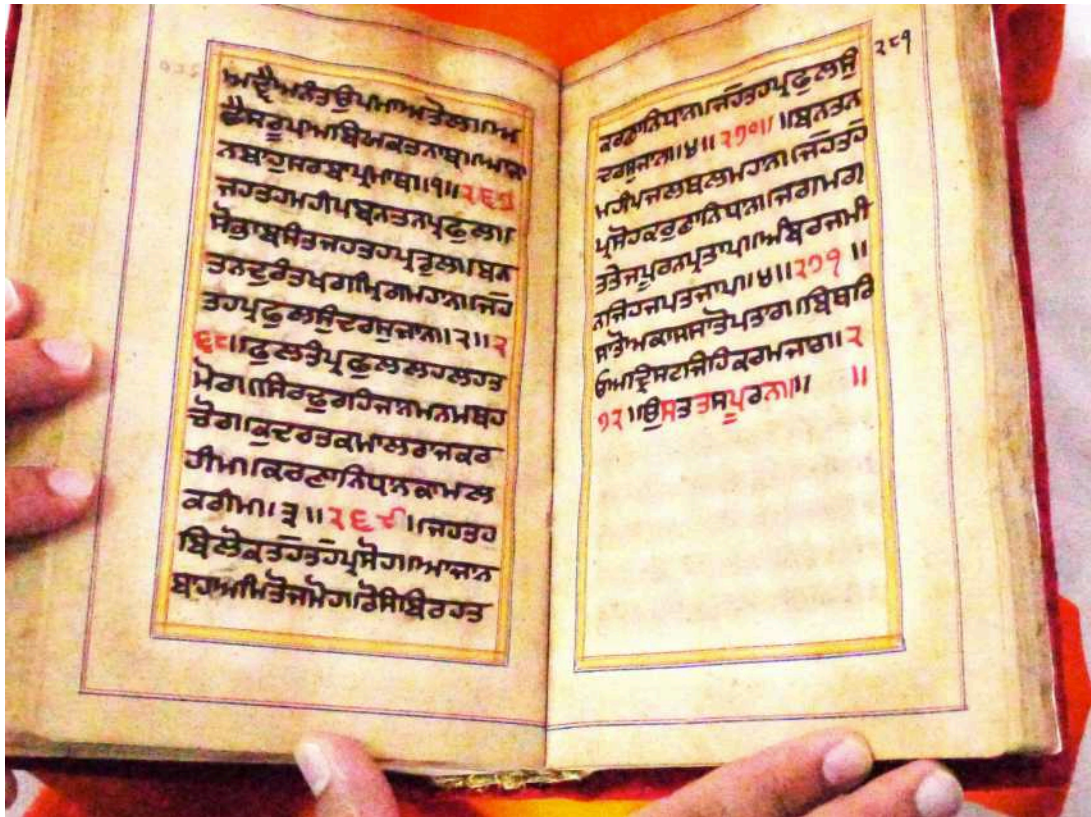 ਅਦ੍ਵੈਅਨੰਤਉਪਮਾਅਤੋਲ॥ਅ
ਦ੍ਵੈਸਰੂਪਅਬਿਅਕਤਨਾਥ॥ਆਜਾ
ਨਬਾਹੁਸਰਬਾਪ੍ਰਮਾਥ॥੧॥੨੬੭
ਜਹਤਹਮਹੀਪਬਨਤਨਪ੍ਰਫੁਲ॥
ਸੋਭਾਬਸੰਤਜਹਤਹਪ੍ਰਤੁਲ॥ਬਨ
ਤਨਦੁਰੰਤਖਗਮ੍ਰਿਗਮਹਾਨ॥ਜਹ
ਤਹਪ੍ਰਫੁਲਸੁੰਦਰਸੁਜਾਨ॥੨॥੨
੬੮॥ਫੁਲਤੰਪ੍ਰਫੁਲਲਹਲਹਤ
ਮੌਰ॥ਸਿਰਢੁਰਹਿਜਾਨਮਨਮਥਹ
ਚੌਰ॥ਕੁਦਰਤਕਮਾਲਰਾਜਕਰ
ਹੀਮ॥ਕਰਣਾਨਿਧਨਕਾਮਲ
ਕਰੀਮ॥੩॥੨੬੯॥ਜਹਤਹ
ਬਿਲੋਕਤਹਤਹਪ੍ਰਸੋਹ॥ਆਜਾਨ
ਬਾਹਅਮਿਤੋਜਮੋਹ॥ਰੋਸੰਬਿਰਹਤ
੨੮੧
ਕਰਣਾਨਿਧਾਨ॥ਜਹਤਹਪ੍ਰਫੁਲਸੁੰ
ਦਰਸੁਜਾਨ॥੪॥੨੭੦॥ਬਨਤਨ
ਮਹੀਪਜਲਥਲਮਹਾਨ॥ਜਹਤਹ
ਪ੍ਰਸੋਹਕਰੁਣਾਨਿਧਾਨ॥ਜਗਮਗ
ਤਤੇਜਪੂਰਨਪ੍ਰਤਾਪ॥ਅੰਬਰਜਮੀ
ਨਜਿਹਜਪਤਜਾਪ॥੪॥੨੭੧॥
ਸਾਤੋਅਕਾਸਸਾਤੋਪਤਾਰ॥ਬਿਥਰਿ
ਓਅਦ੍ਰਿਸਟਜਿਹਿਕਰਮਜਾਰ॥੨
੭੨॥ਉਸਤਤਸਪੂਰਨ॥॥ ॥